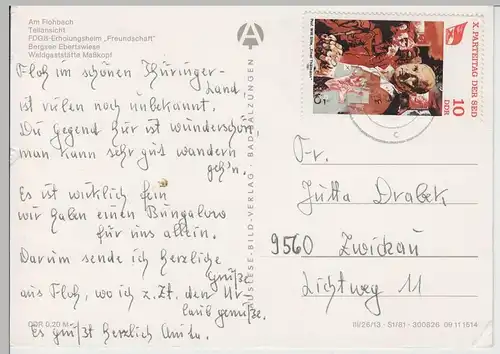 Am Flohbach
Teilansicht
FDGB-Erholungsheim „Freundschaft"
Bergsee Ebertswiese
Waldgaststätte Maßkopf
Floh im schönen Thüringer-
Land
ist vielen noch unbekannt.
Die Gegend hier ist wunderschön,
man kann sehr gut wandern
geh'n.
Es ist wirklich fein
wir haben einen Bungalow
für uns allein.
Darum sende ich herzliche
Grüße
aus Floh, wo ich z. Zt. den Ur-
laub genieße.
Es grüßt herzlich Anita.
DDR 0,20 M
AUSLESE-BILD-VERLAG · BAD SALZUNGEN
A
X. PARTEITAG DER SED
DDR 10
Fr.
Jutta Drabek
9560 Zwickau
Lichtweg 11
III/26/13 · S1/81 · 300826 09 11 1614